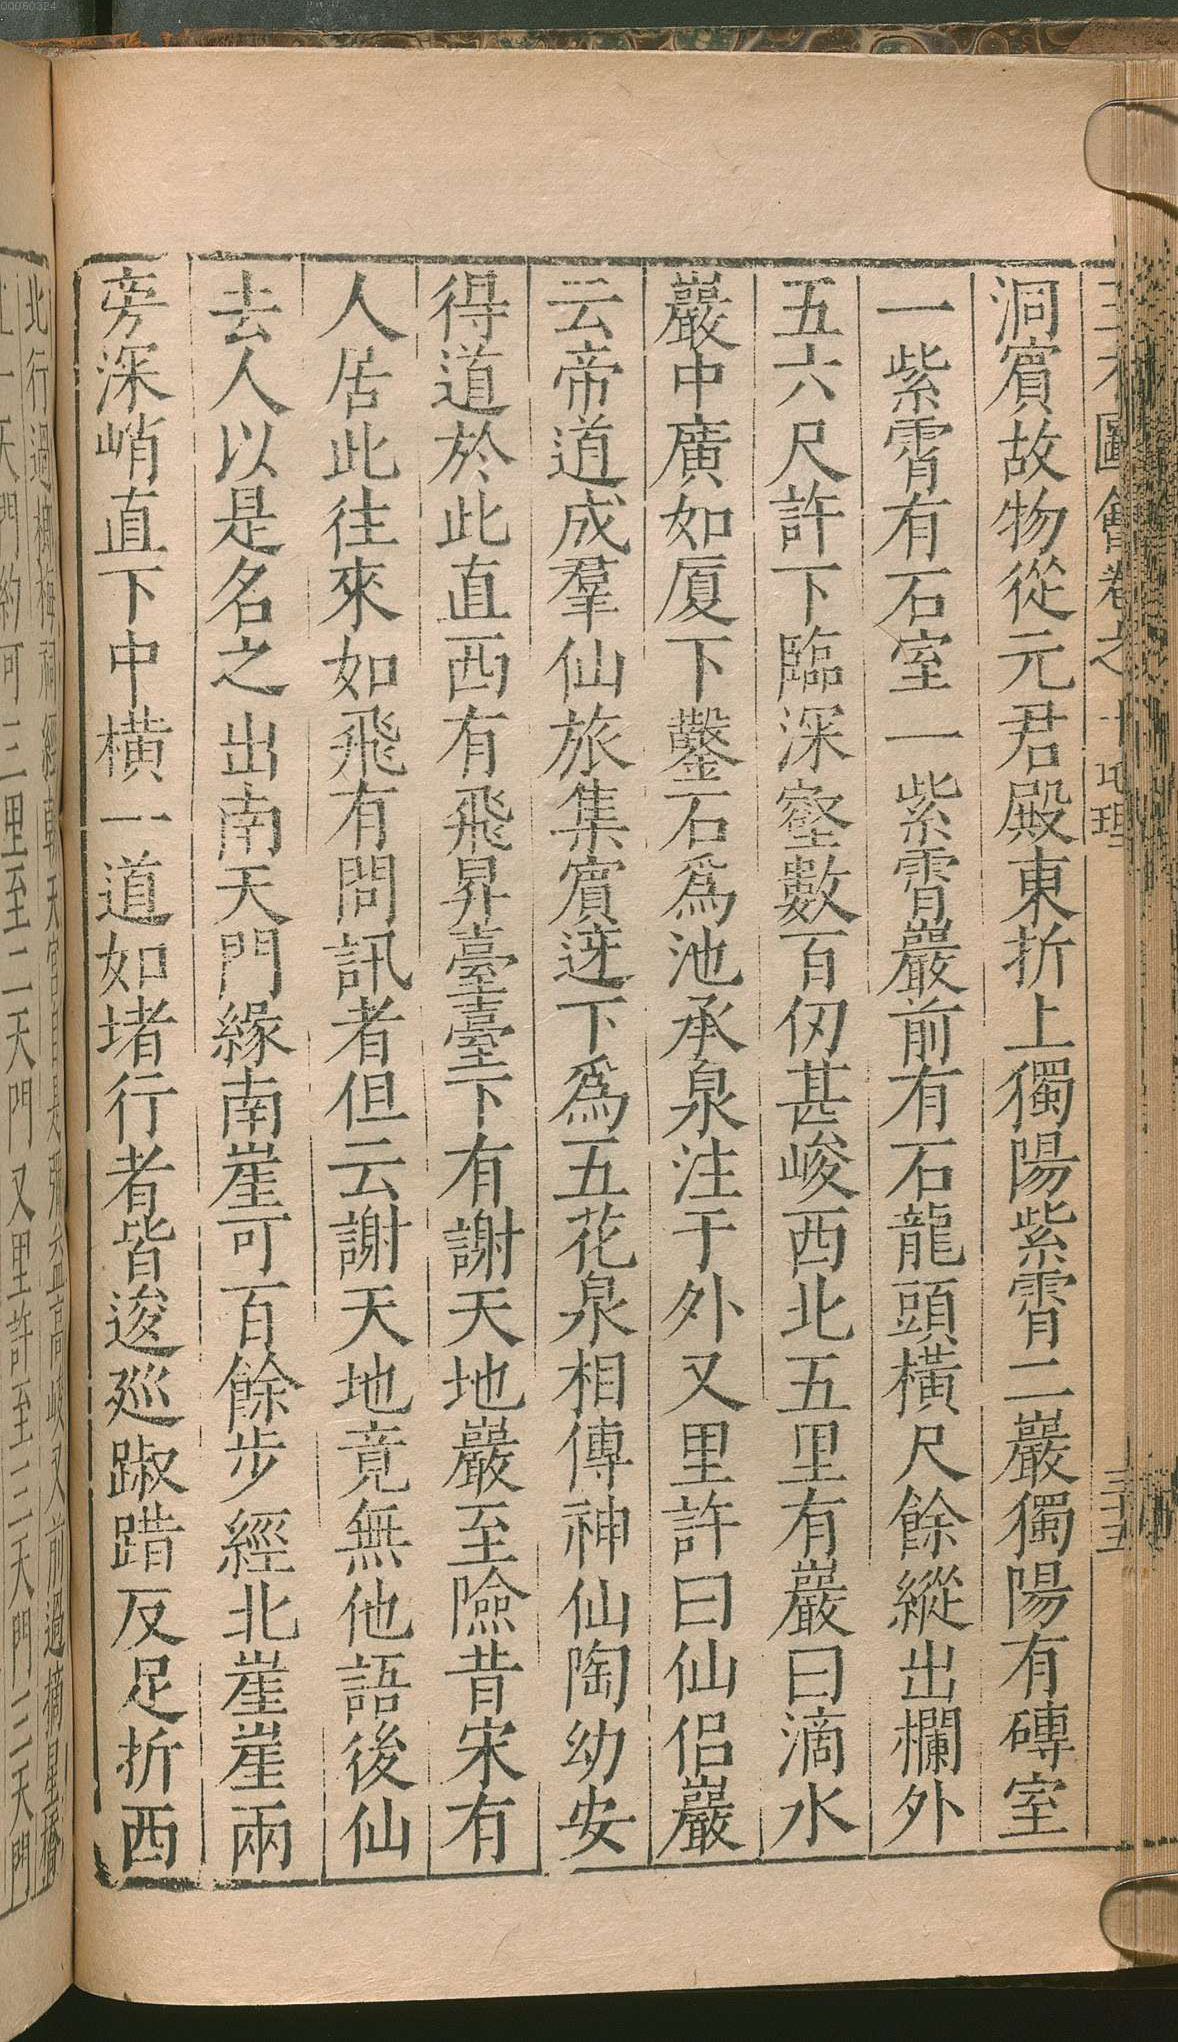 00060324
三才圖會卷之十地理 三十五
洞賓故物從元君殿東折上獨陽紫霄二巖獨陽有磚室
一紫霄有石室一紫霄巖前有石龍頭橫尺餘縱出欄外
五六尺許下臨深壑數百仞甚峻西北五里有巖曰滴水
巖中廣如厦下鑿石爲池承泉注于外又里許曰仙侶巖
云帝道成羣仙旅集賓迓下爲五花泉相傳神仙陶幼安
得道於此直西有飛昇臺臺下有謝天地巖至險昔宋有
人居此往來如飛有問訊者但云謝天地竟無他語後仙
去人以是名之出南天門緣南崖可百餘步經北崖崖兩
旁深峭直下中橫一道如堵行者皆逡廵踧踖反足折西
北行過榔梅祠經朝天宮皆是飛益高峻又前過摘星橋
上一天門約可三里至二天門又里許至三天門三天門